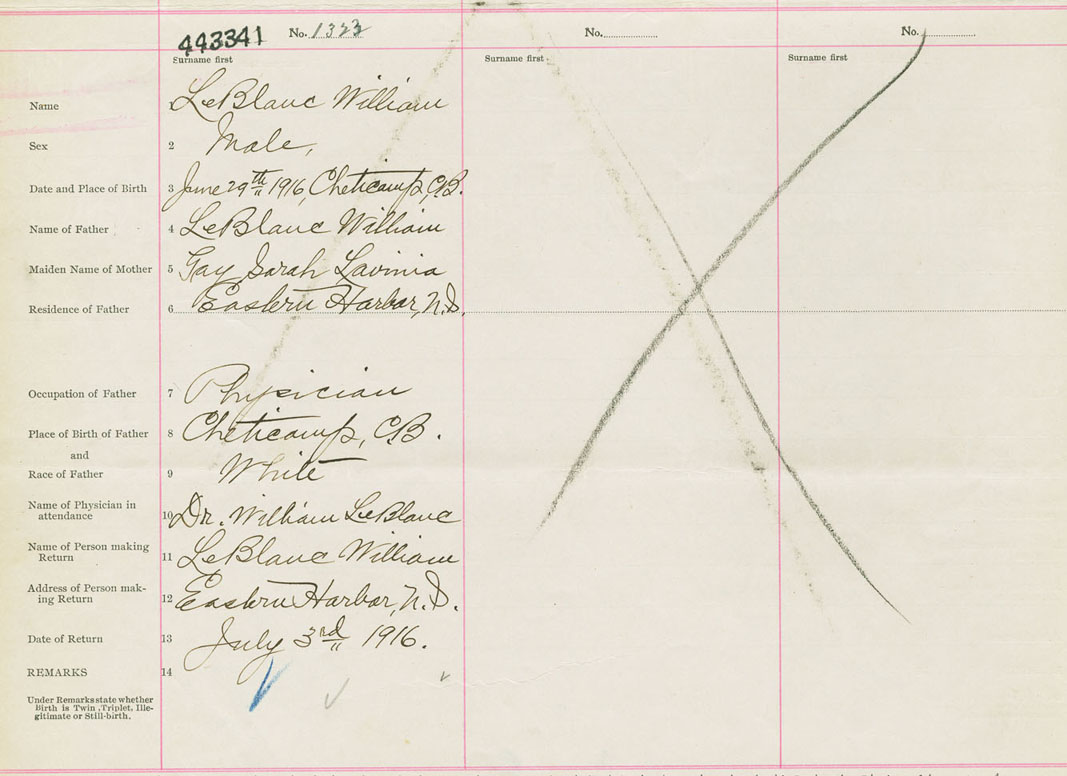 443341 No. 1323 No. No.
Surname first Surname first Surname first
Name LeBlanc William
Sex 2 Male,
Date and Place of Birth 3 June 29th 1916, Cheticamp, C.B.
Name of Father 4 LeBlanc William
Maiden Name of Mother 5 Gay Sarah Lavinia
Residence of Father 6 Eastern Harbor, N.S.
Occupation of Father 7 Physician
Place of Birth of Father 8 Cheticamp, C.B.
and
Race of Father 9 White
Name of Physician in
attendance 10 Dr. William LeBlanc
Name of Person making
Return 11 LeBlanc William
Address of Person mak-
ing Return 12 Eastern Harbor, N.S.
Date of Return 13 July 3rd 1916.
REMARKS 14
Under Remarks state whether
Birth is Twin, Triplet, Ille-
gitimate or Still-birth.